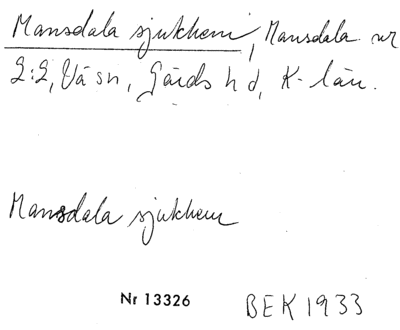 Mansdala sjukhem, Mansdala nr
2:2, Vä sn, Gärds hd, K-län.
Mansdala sjukhem
Nr 13326 BEK 1933